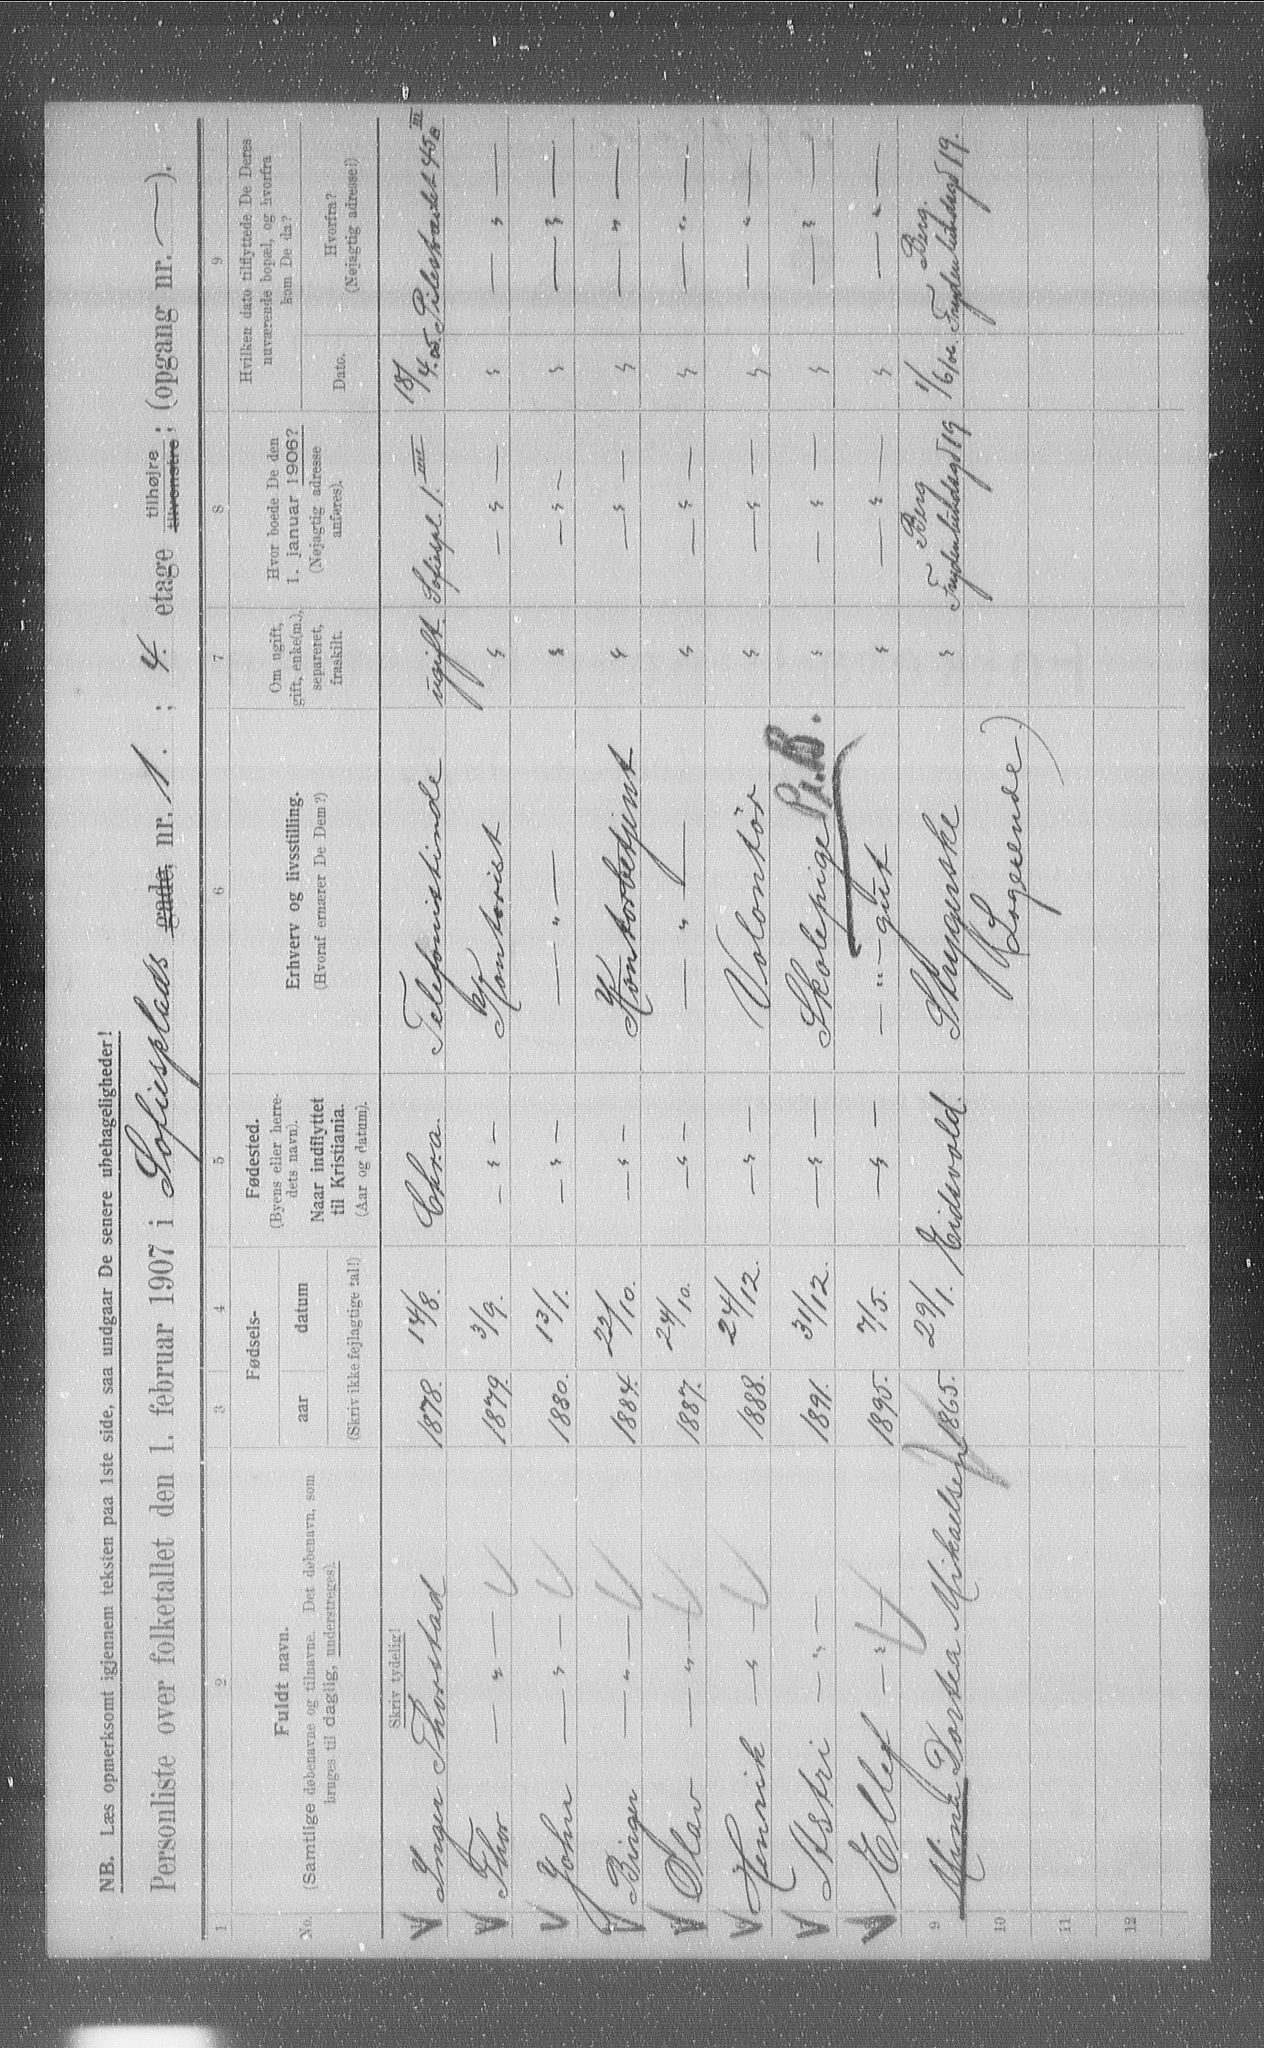 NB. Læs opmerksomt igjennem teksten paa 1ste side, saa undgaar De senere ubehageligheder!
Personliste over folketallet den 1. februar 1907 i Sofiesplads gade, nr. 1. ; 4. etage tilhøjre tilvenstre; (opgang nr. —).
1 2 3 4 5 6 7 8 9
No.
Fuldt navn.
(Samtlige døbenavne og tilnavne. Det døbenavn, som
bruges til daglig, understreges).
Fødsels-
aar
datum
(Skriv ikke fejlagtige tal!)
Fødested.
(Byens eller herre-
dets navn).
Naar indflyttet
til Kristiania.
(Aar og datum).
Erhverv og livsstilling.
(Hvoraf ernærer De Dem?)
Om ugift,
gift, enke(m.),
separeret,
fraskilt.
Hvor boede De den
1. januar 1906?
(Nøjagtig adresse
anføres).
Hvilken dato tilflyttede De Deres
nuværende bopæl, og hvorfra
kom De da?
Dato.
Hvorfra?
(Nøjagtig adresse!)
Skriv tydelig!
Inger Thorstad 1878. 14/8. Chra. Telefonistinde ugift. Sofiespl. 1. IIII 18/4.05. Pilestrædet 45B III
Thor — " — 1879. 3/9. — " — Kontorist " — " — " — " —
John — " — 1880. 13/1. — " — — " — " — " — " — " —
Birger — " — 1884. 22/10. — " — Kontorbetjent " — " — " — " —
Olav — " — 1887. 24/10. — " — — " — " — " — " — " —
Henrik — " — 1888. 24/12. — " — Volontör " — " — " — " —
Astri — " — 1891. 31/12. — " — Skolepige " — " — " — " —
Ellef — " 1895. 7/5. — " — — " — gut " — " — " — " —
9 Mina Dorthea Mikaelsen 1865. 29/1. Eidsvold. Strygerske " Berg Frydenlundsgd 19 1/6/06. Berg. Frydenlundsgd 19.
10 (Logerende)
11
12